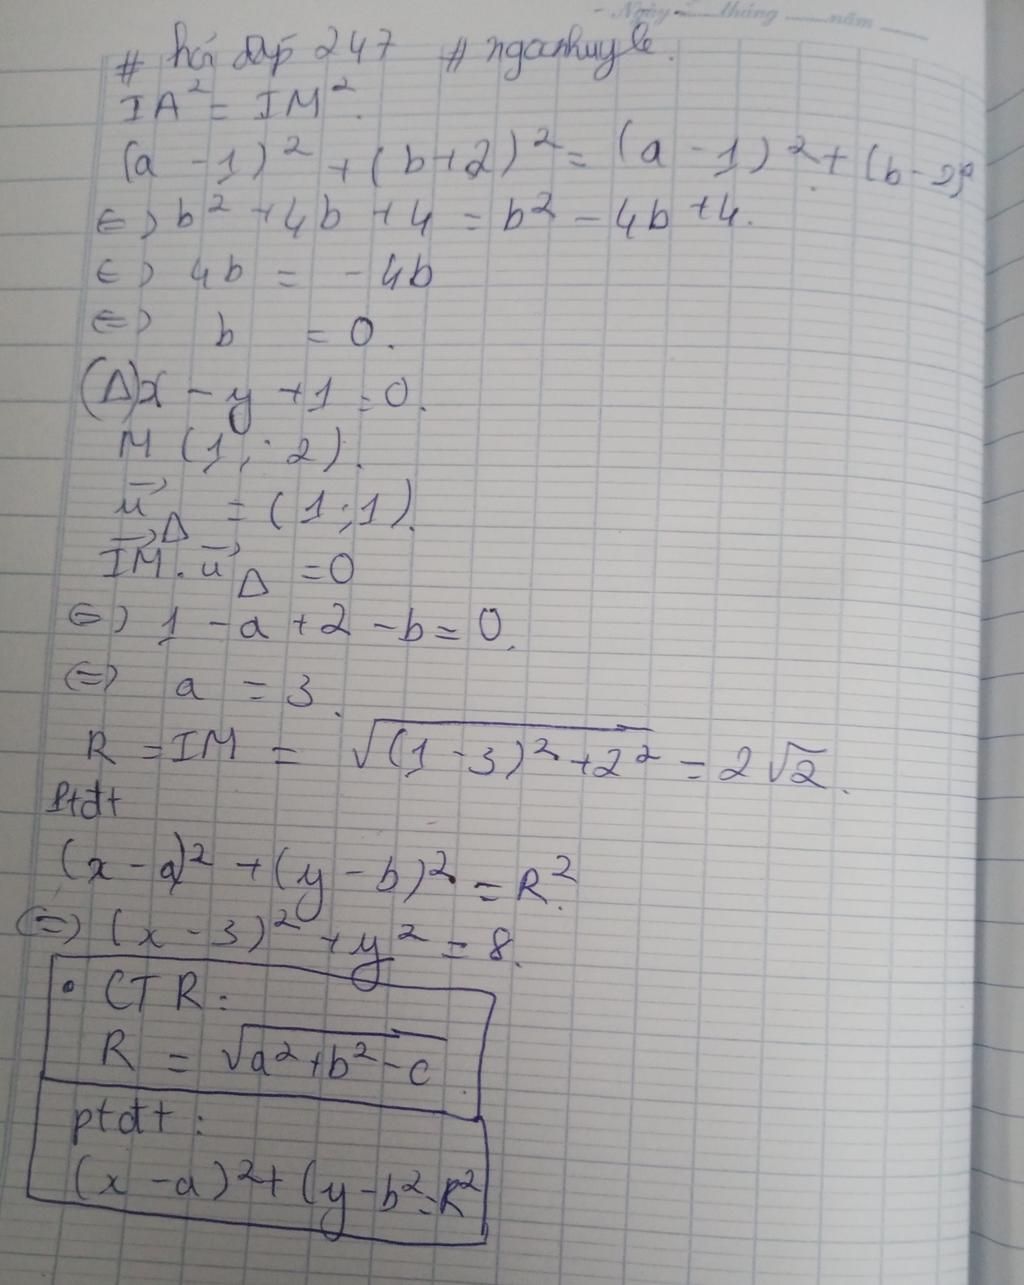 Ngày tháng năm
# hỏi đáp 247 # nganhuyle.
IA² = IM².
(a - 1)² + (b+2)² = (a - 1)² + (b - 2)²
⇔ b² + 4b + 4 = b² - 4b + 4.
⇔ 4b = - 4b
⇔ b = 0.
(Δ) x - y + 1 = 0.
M (1; 2).
u⃗_Δ = (1; 1).
IM⃗ . u⃗_Δ = 0
⇔ 1 - a + 2 - b = 0.
⇔ a = 3.
R = IM = √((1 - 3)² + 2²) = 2√2.
Ptđt
(x - a)² + (y - b)² = R².
(⇔) (x - 3)² + y² = 8.
• CT R:
R = √(a² + b² - c)
ptđt:
(x - a)² + (y - b² = R²